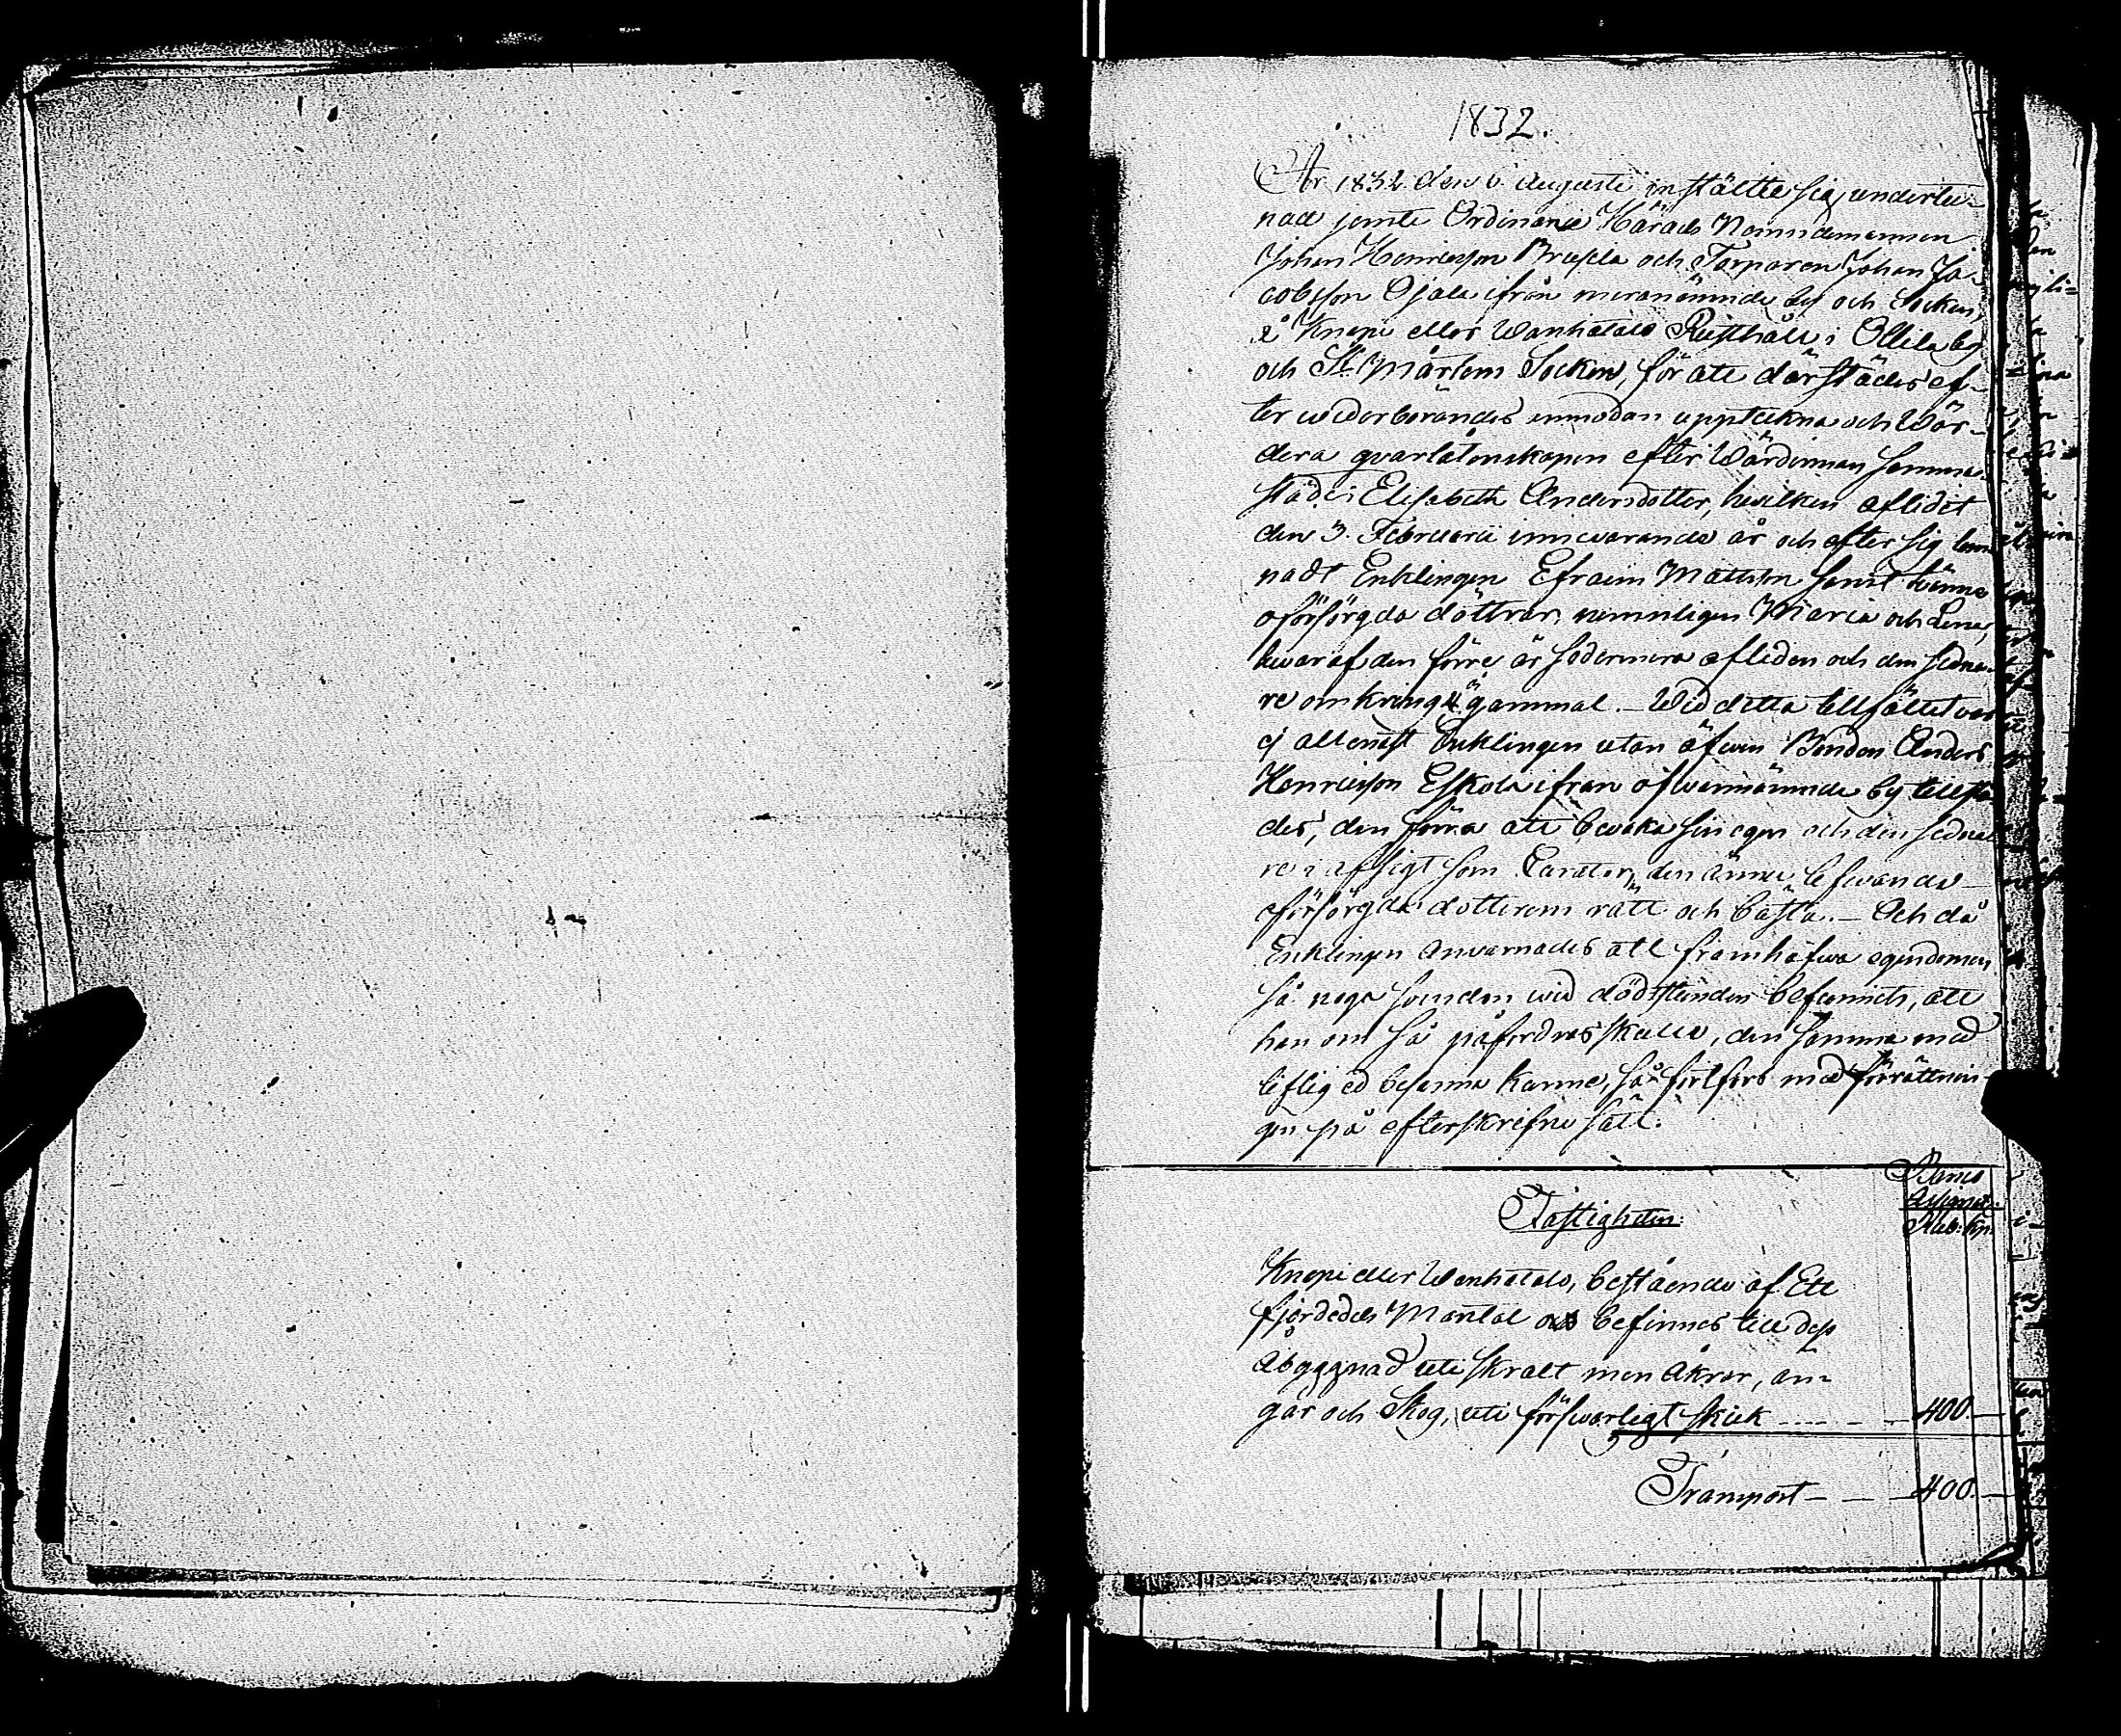 1832.
År 1832 den 6 Augusti instälte sig underteck-
nad jemte Ordinarie Härads Nämndemannen
Johan Henricsson och Torparen Johan Ja-
cobsson Ojala ifrån by och Socken,
å Knapi eller Wanhatalo Rusthåll i Ollila by
och S:t Mårtens Socken, för att därstädes ef-
ter wederbörandes anmodan uppteckna och wär-
dera qvarlåtenskapen efter Wärdinnan samma-
städes Elisabeth Andersdotter, hwilken aflidit
den 3. Februarii innewarande år och efter sig lem-
nadt Enklingen Efraim Mattsson samt tvänne
oförsörgda döttrar, nemnligen Maria och Lena,
hwaraf den förre är sedermera afliden och den sedna-
re omkring 4 år gammal. – Wid detta tillfället var
ej allenast Enklingen utan äfwen Bonden Anders
Henricsson Eskola ifrån ofwannämnde by tillstä-
des, den förra att bewaka sin egen och den sedna-
re i afsigt som Curator, den ännu lefwande
oförsörgda dotterens rätt och bästa. – Och då
Enklingen anwarnades att framhafwa egendomen
så noga som den wid dödsstunden befunnits, att
han om så påfordras skulle, den samma med
liflig ed besanna kunne, så fortfors med förrättnin-
gen på efterskrefne sätt:
Banco
Assignat.
Rub. Kop.
Fastigheten.
Knapi eller Wanhatalo, bestående af Ett
fjerdedels Mantal och befinnes till dess
åbyggnad uti skralt men åkrar, än-
gar och Skog, uti försvarligt skick - - - - 400. —
Transport - - - 400. —